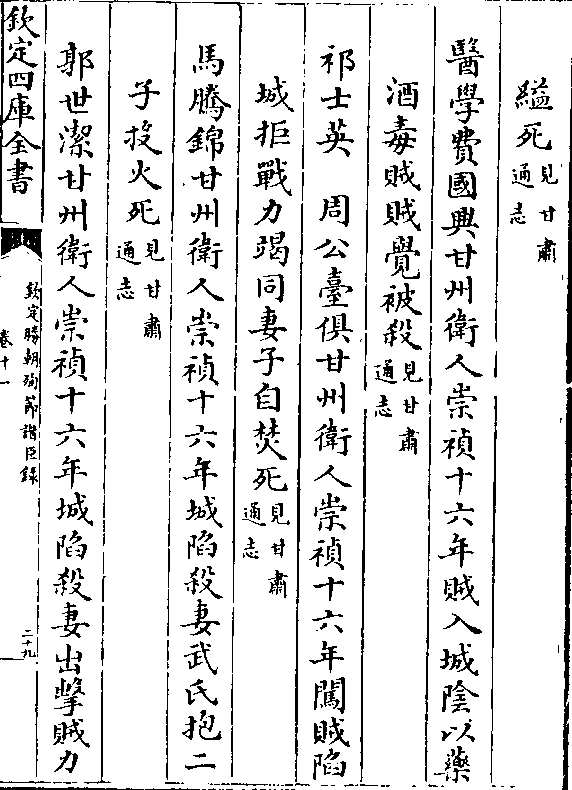 縊死見甘肅通志
醫學費國興甘州衛人崇禎十六年賊入城陰以藥
酒毒賊賊覺被殺見甘肅通志
祁士英　周公臺俱甘州衛人崇禎十六年闖賊陷
城拒戰力竭同妻子自焚死見甘肅通志
馬騰錦甘州衛人崇禎十六年城陷殺妻武氏抱二
子投火死見甘肅通志
郭世潔甘州衛人崇禎十六年城陷殺妻出擊賊力
欽定四庫全書
欽定勝朝殉節諸臣錄
卷十一
二十九